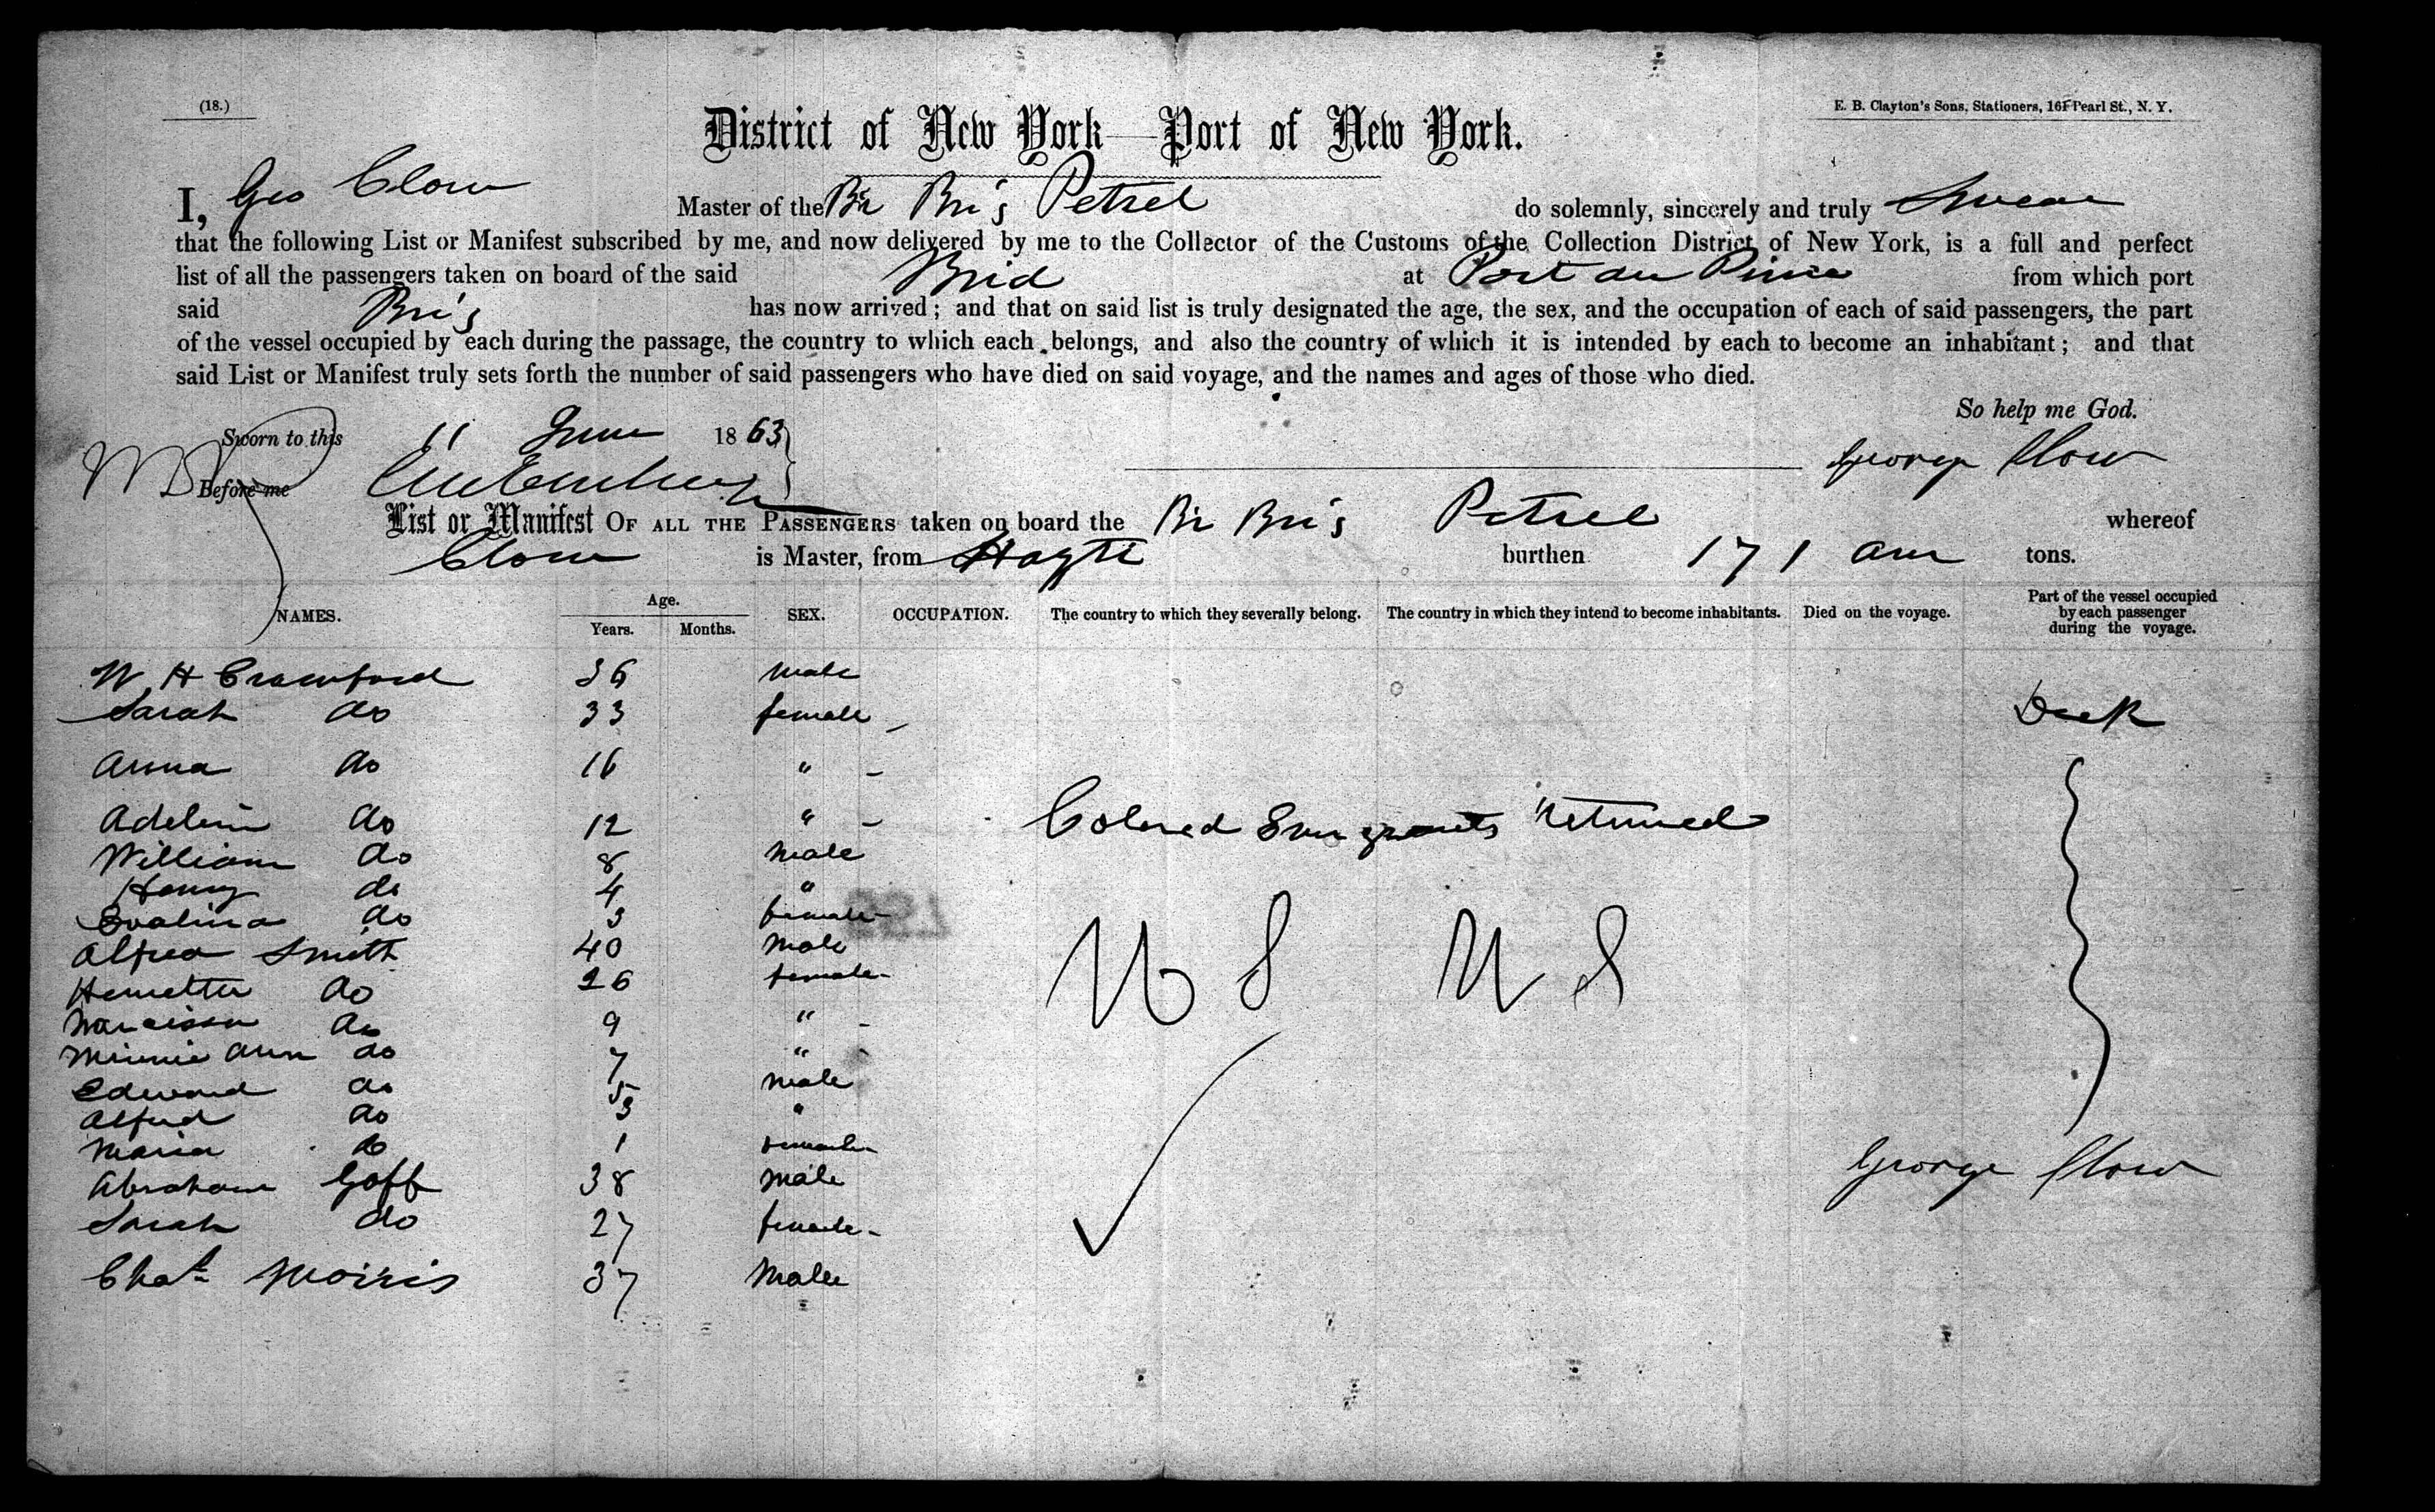 (18.)
E. B. Clayton's Sons, Stationers, 161 Pearl St., N. Y.
District of New York—Port of New York.
I, Geo Clow Master of the Br Brig Petrel do solemnly, sincerely and truly Swear
that the following List or Manifest subscribed by me, and now delivered by me to the Collector of the Customs of the Collection District of New York, is a full and perfect
list of all the passengers taken on board of the said Brig at Port au Prince from which port
said Brig has now arrived; and that on said list is truly designated the age, the sex, and the occupation of each of said passengers, the part
of the vessel occupied by each during the passage, the country to which each belongs, and also the country of which it is intended by each to become an inhabitant; and that
said List or Manifest truly sets forth the number of said passengers who have died on said voyage, and the names and ages of those who died.
So help me God.
Sworn to this 11 June 1863
George Clow
Before me
List or Manifest OF ALL THE PASSENGERS taken on board the Br Brig Petrel whereof
Clow is Master, from Hayti burthen 171 tons.
NAMES. Age. Years. Months. SEX. OCCUPATION. The country to which they severally belong. The country in which they intend to become inhabitants. Died on the voyage. Part of the vessel occupied by each passenger during the voyage.
W H Crawford 36 male
Sarah do 33 female Deck
Anna do 16 "
Adeline do 12 " Colored Emigrants returned
William do 8 male
Henry do 4 "
Evalina do 3 female
Alfred Smith 40 male
U S U S
Henrietta do 26 female
Narcissa do 9 "
Minnie Ann do 7 "
Edward do 5 male
Alfred do 3 "
Maria do 1 female
George Clow
Abraham Goff 38 male
Sarah do 27 female
Chas Morris 37 Male